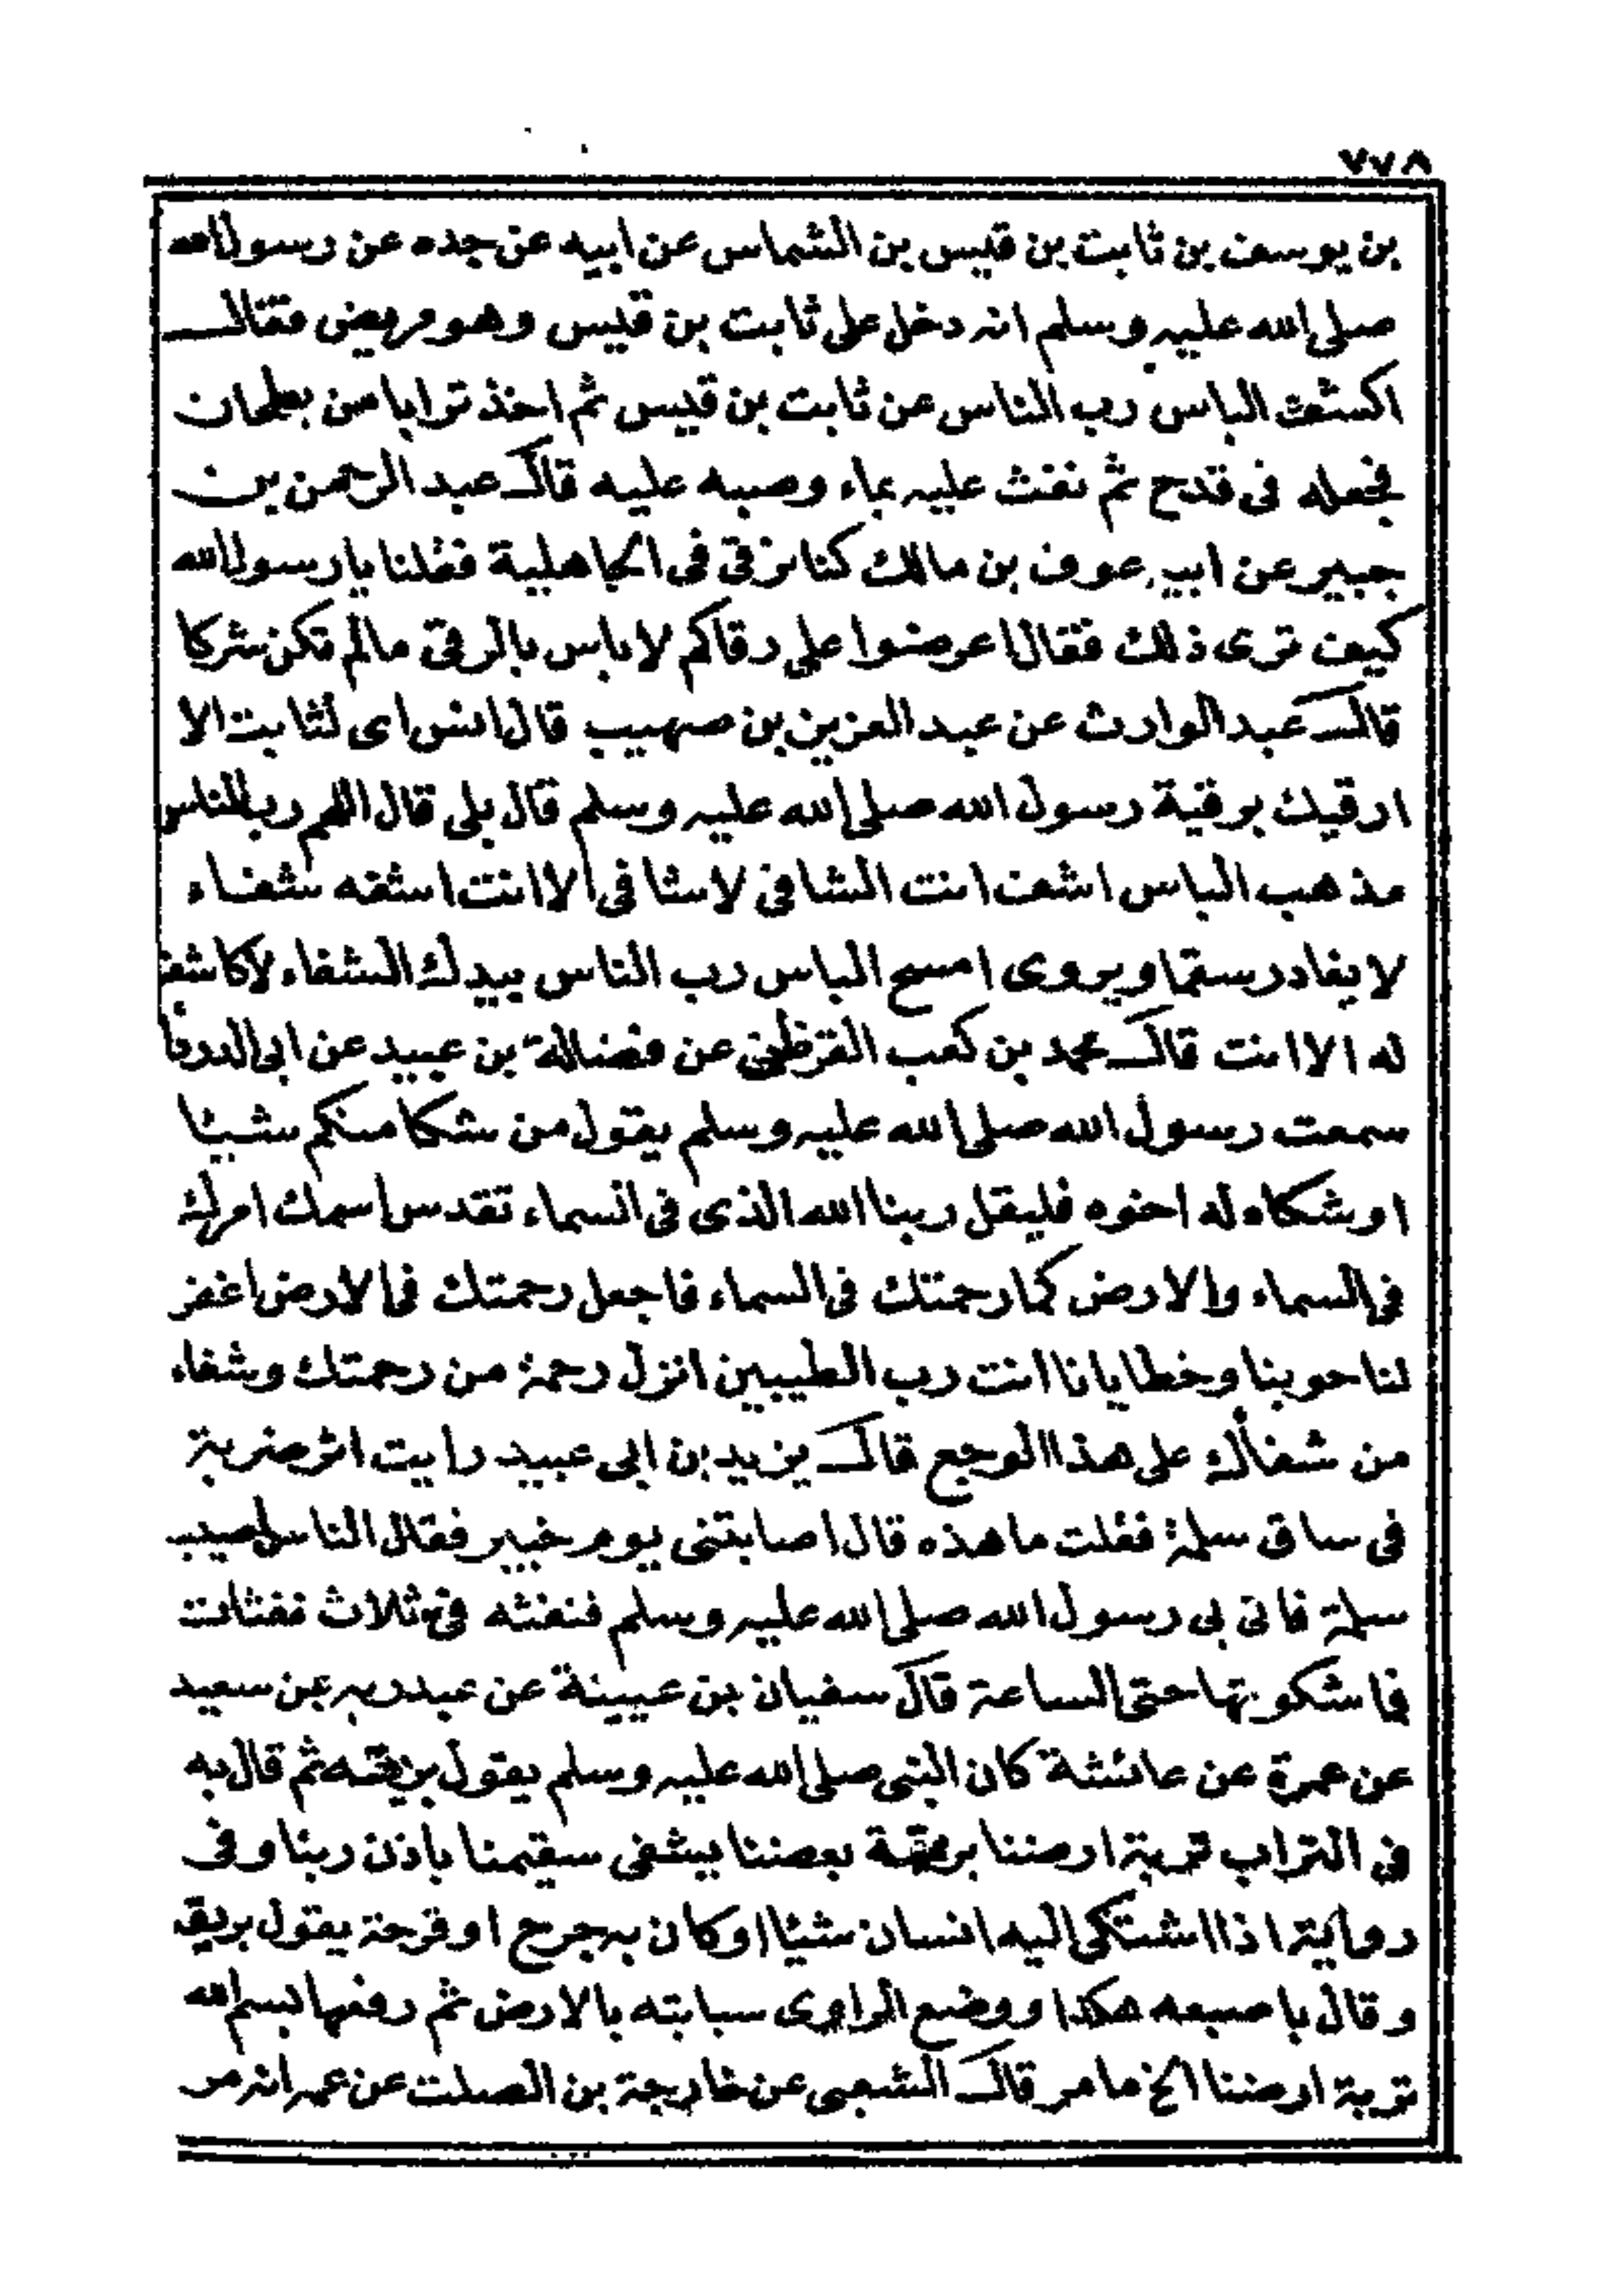 ٧٧٨
بن يوسف بن ثابت بن قيس بن الشماس عن ابيه عن جده عن رسول الله
صلى الله عليه وسلم انه دخل على ثابت بن قيس وهو مريض فقال
اكشف الباس رب الناس عن ثابت بن قيس ثم اخذ ترابا من بطحان
فجعله فى قدح ثم نفث عليه بماء وصبه عليه قال عبد الرحمن بن
جبير عن ابيه عوف بن مالك كنا نرقى فى الجاهلية فقلنا يا رسول الله
كيف ترى ذلك فقال اعرضوا على رقاكم لا باس بالرقى مالم تكن شركا
قال عبد الوارث عن عبد العزيز بن صهيب قال انس اى لثابت الا
ارقيك برقية رسول الله صلى الله عليه وسلم قال بلى قال اللهم رب الناس
مذهب الباس اشف انت الشافى لا شافى الا انت اشفه شفاء
لا يغادر سقما ويروى امسح الباس رب الناس بيدك الشفاء لا كاشف
له الا انت قال محمد بن كعب القرظى عن فضالة بن عبيد عن ابى الدردا
سمعت رسول الله صلى الله عليه وسلم يقول من شكا منكم شيئا
او شكاه له اخوه فليقل ربنا الله الذى فى السماء تقدس اسمك امرك
فى السماء والارض كما رحمتك فى السماء فاجعل رحمتك فى الارض اغفر
لنا حوبنا وخطايانا انت رب الطيبين انزل رحمة من رحمتك وشفاء
من شفائك على هذا الوجع قال يزيد بن ابى عبيد رايت اثر ضربة
فى ساق سلمة فقلت ما هذه قال اصابتنى يوم خيبر فقال الناس اصيب
سلمة فاتى بى رسول الله صلى الله عليه وسلم فنفثه فى ثلاث نفثات
فما شكوتها حتى الساعة قال سفيان بن عيينة عن عبدربه عن سعيد
عن عمرة عن عائشة كان النبى صلى الله عليه وسلم يقول بريقته ثم قال به
فى التراب تربة ارضنا بريقة بعضنا يشفى سقيمنا باذن ربنا وفى
رواية اذا اشتكى اليه انسان شيئا او كان به جرح او قرحة يقول بريق
وقال باصبعه هكذا ووضع الراوى سبابته بالارض ثم رفعها بسم الله
تربة ارضنا الخ ما مر قال الشعبى عن خارجة بن الصلت عن عمه انه مر